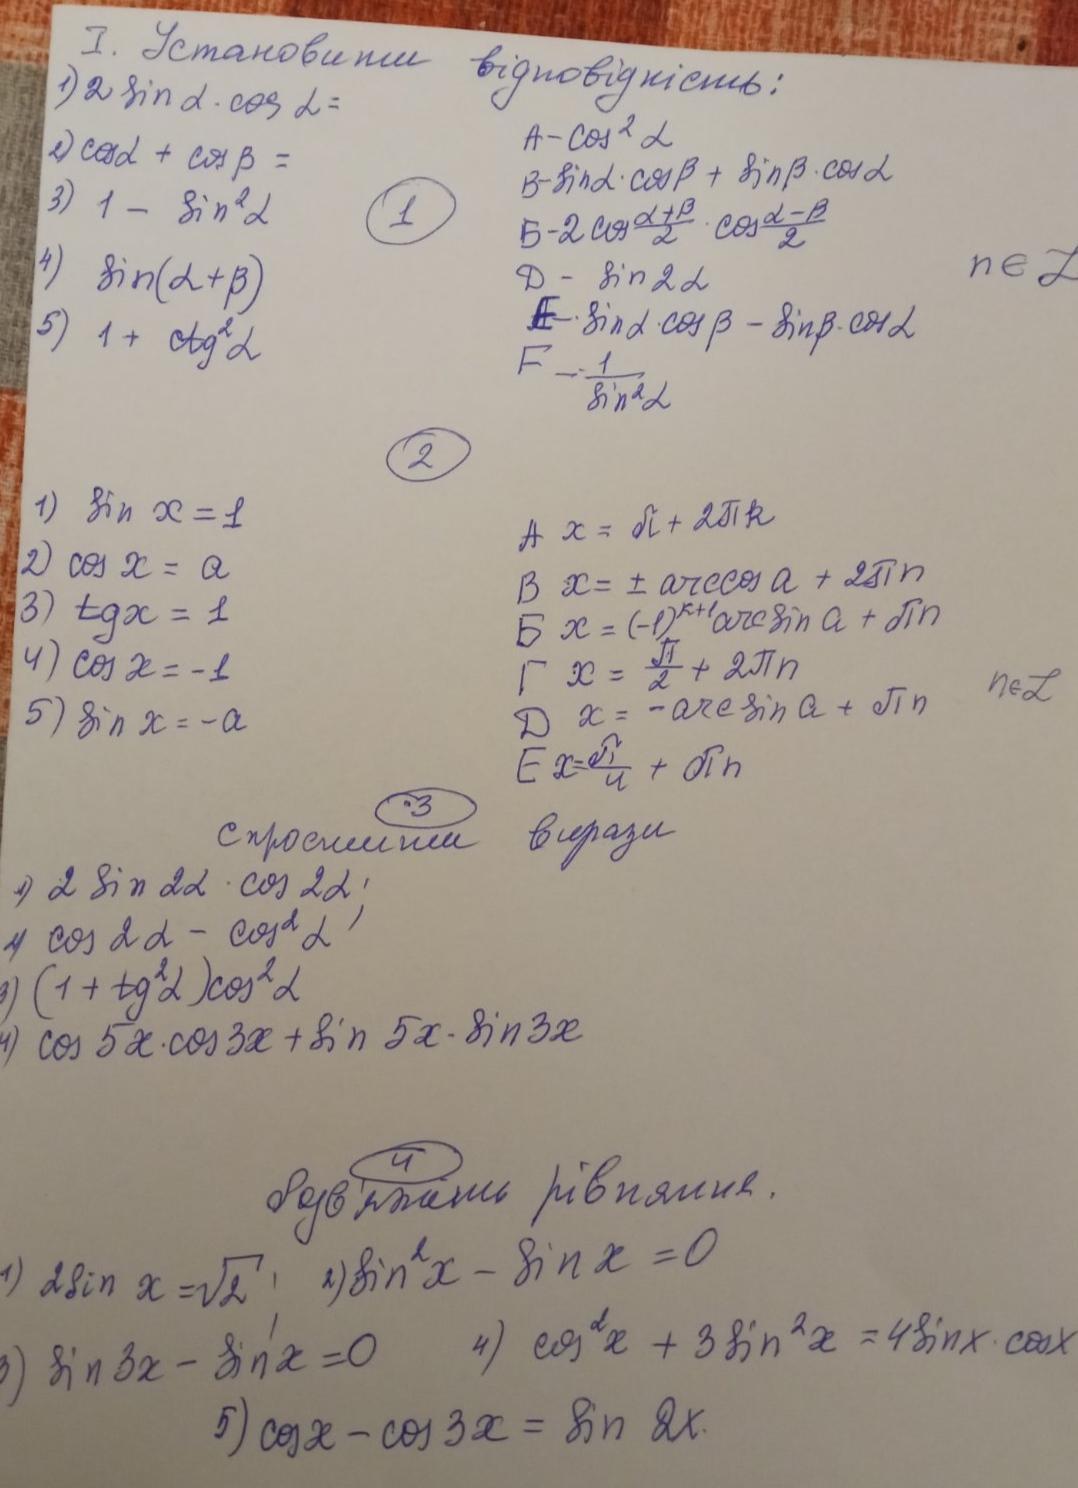 I. Установити відповідність:
1) 2 sin α · cos α =
2) cos α + cos β =
3) 1 - sin²α
4) sin(α+β)
5) 1 + ctg²α
1
А - cos² α
В - sin α · cos β + sin β · cos α
Б - 2 cos (α+β)/2 · cos (α-β)/2
D - sin 2α
E - sin α · cos β - sin β · cos α
F - 1/sin²α
n ∈ Z
2
1) sin x = 1
2) cos x = a
3) tg x = 1
4) cos x = -1
5) sin x = -a
А x = π + 2πk
В x = ± arccos a + 2πn
Б x = (-1)ᵏ⁺¹ arcsin a + πn
Г x = π/2 + 2πn
D x = -arcsin a + πn
E x = π/4 + πn
n ∈ Z
3
спростити вирази
1) 2 sin 2α · cos 2α;
2) cos 2α - cos² α;
3) (1 + tg²α) cos²α
4) cos 5x · cos 3x + sin 5x · sin 3x
4
Розв'яжіть рівняння.
1) 2 sin x = √2; 2) sin²x - sin x = 0
3) sin 3x - sin x = 0 4) cos²x + 3 sin²x = 4 sin x · cos x
5) cos x - cos 3x = sin 2x.